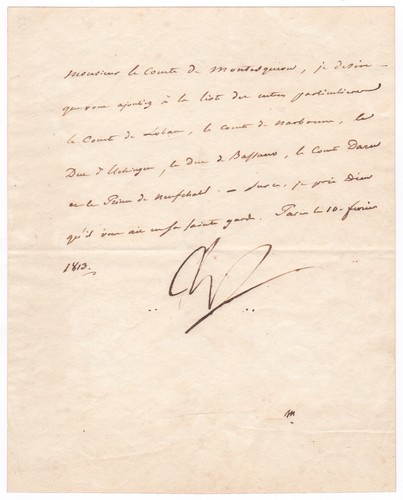 Monsieur le Comte de Montesquiou, je desire
que vous ajoutiez à la liste des entrées particulieres
le Comte de Lobau, le comte de Narbonne, le
Duc d'Elchingen, le Duc de Bassano, le Comte Daru
et le Prince de Neufchatel. — Sur ce, je prie Dieu
qu'il vous ait en sa sainte garde. Paris le 10 fevrier
1813.